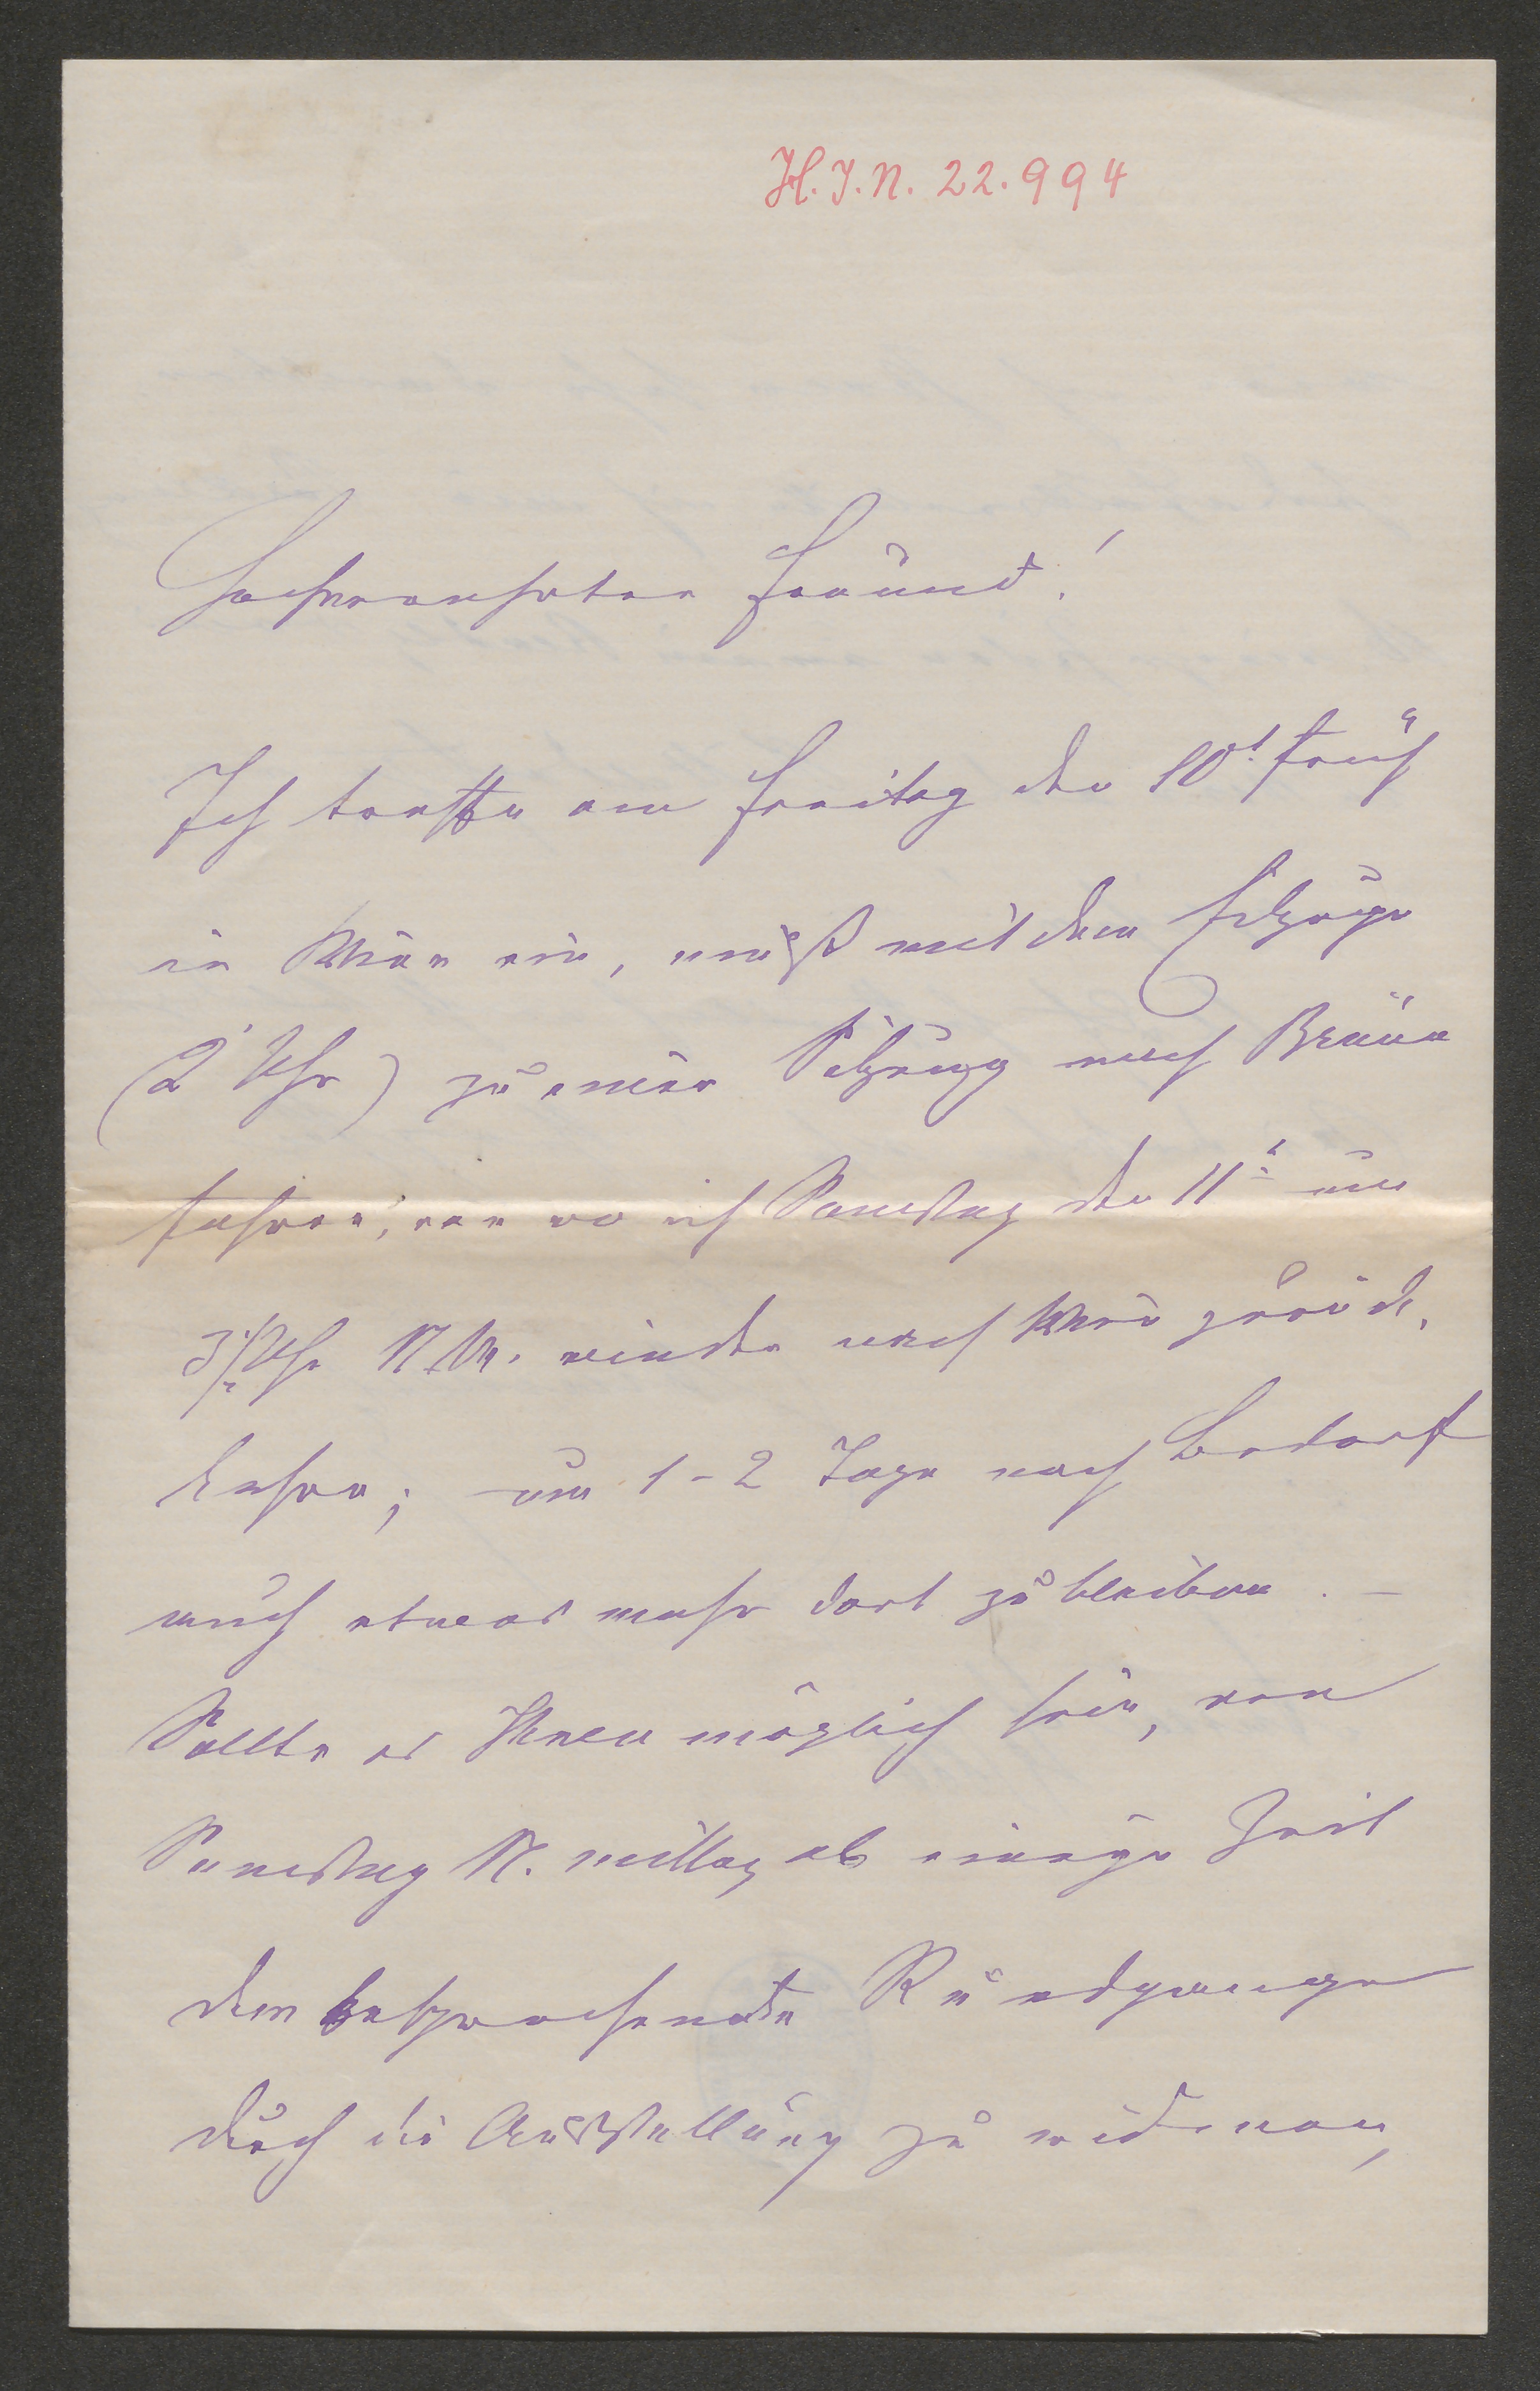 H.I.N. 22.994
Hochverehrter Freund!
Ich treffe am Freitag den 10t. früh
in Wien ein, muß mit dem Eilzuge
(2 Uhr) zu einer Sitzung nach Brünn
fahren, von wo ich Samstag den 11t. um
Uhr N.M. wieder nach Wien zurück-
kehre; um 1-2 Tage nach Bedarf
auch etwas mehr dort zu bleiben. -
Sollte es Ihnen möglich sein, von
Samstag N.mittag ab einige Zeit
dem besprochenen Rundgange
durch die Ausstellung zu widmen,